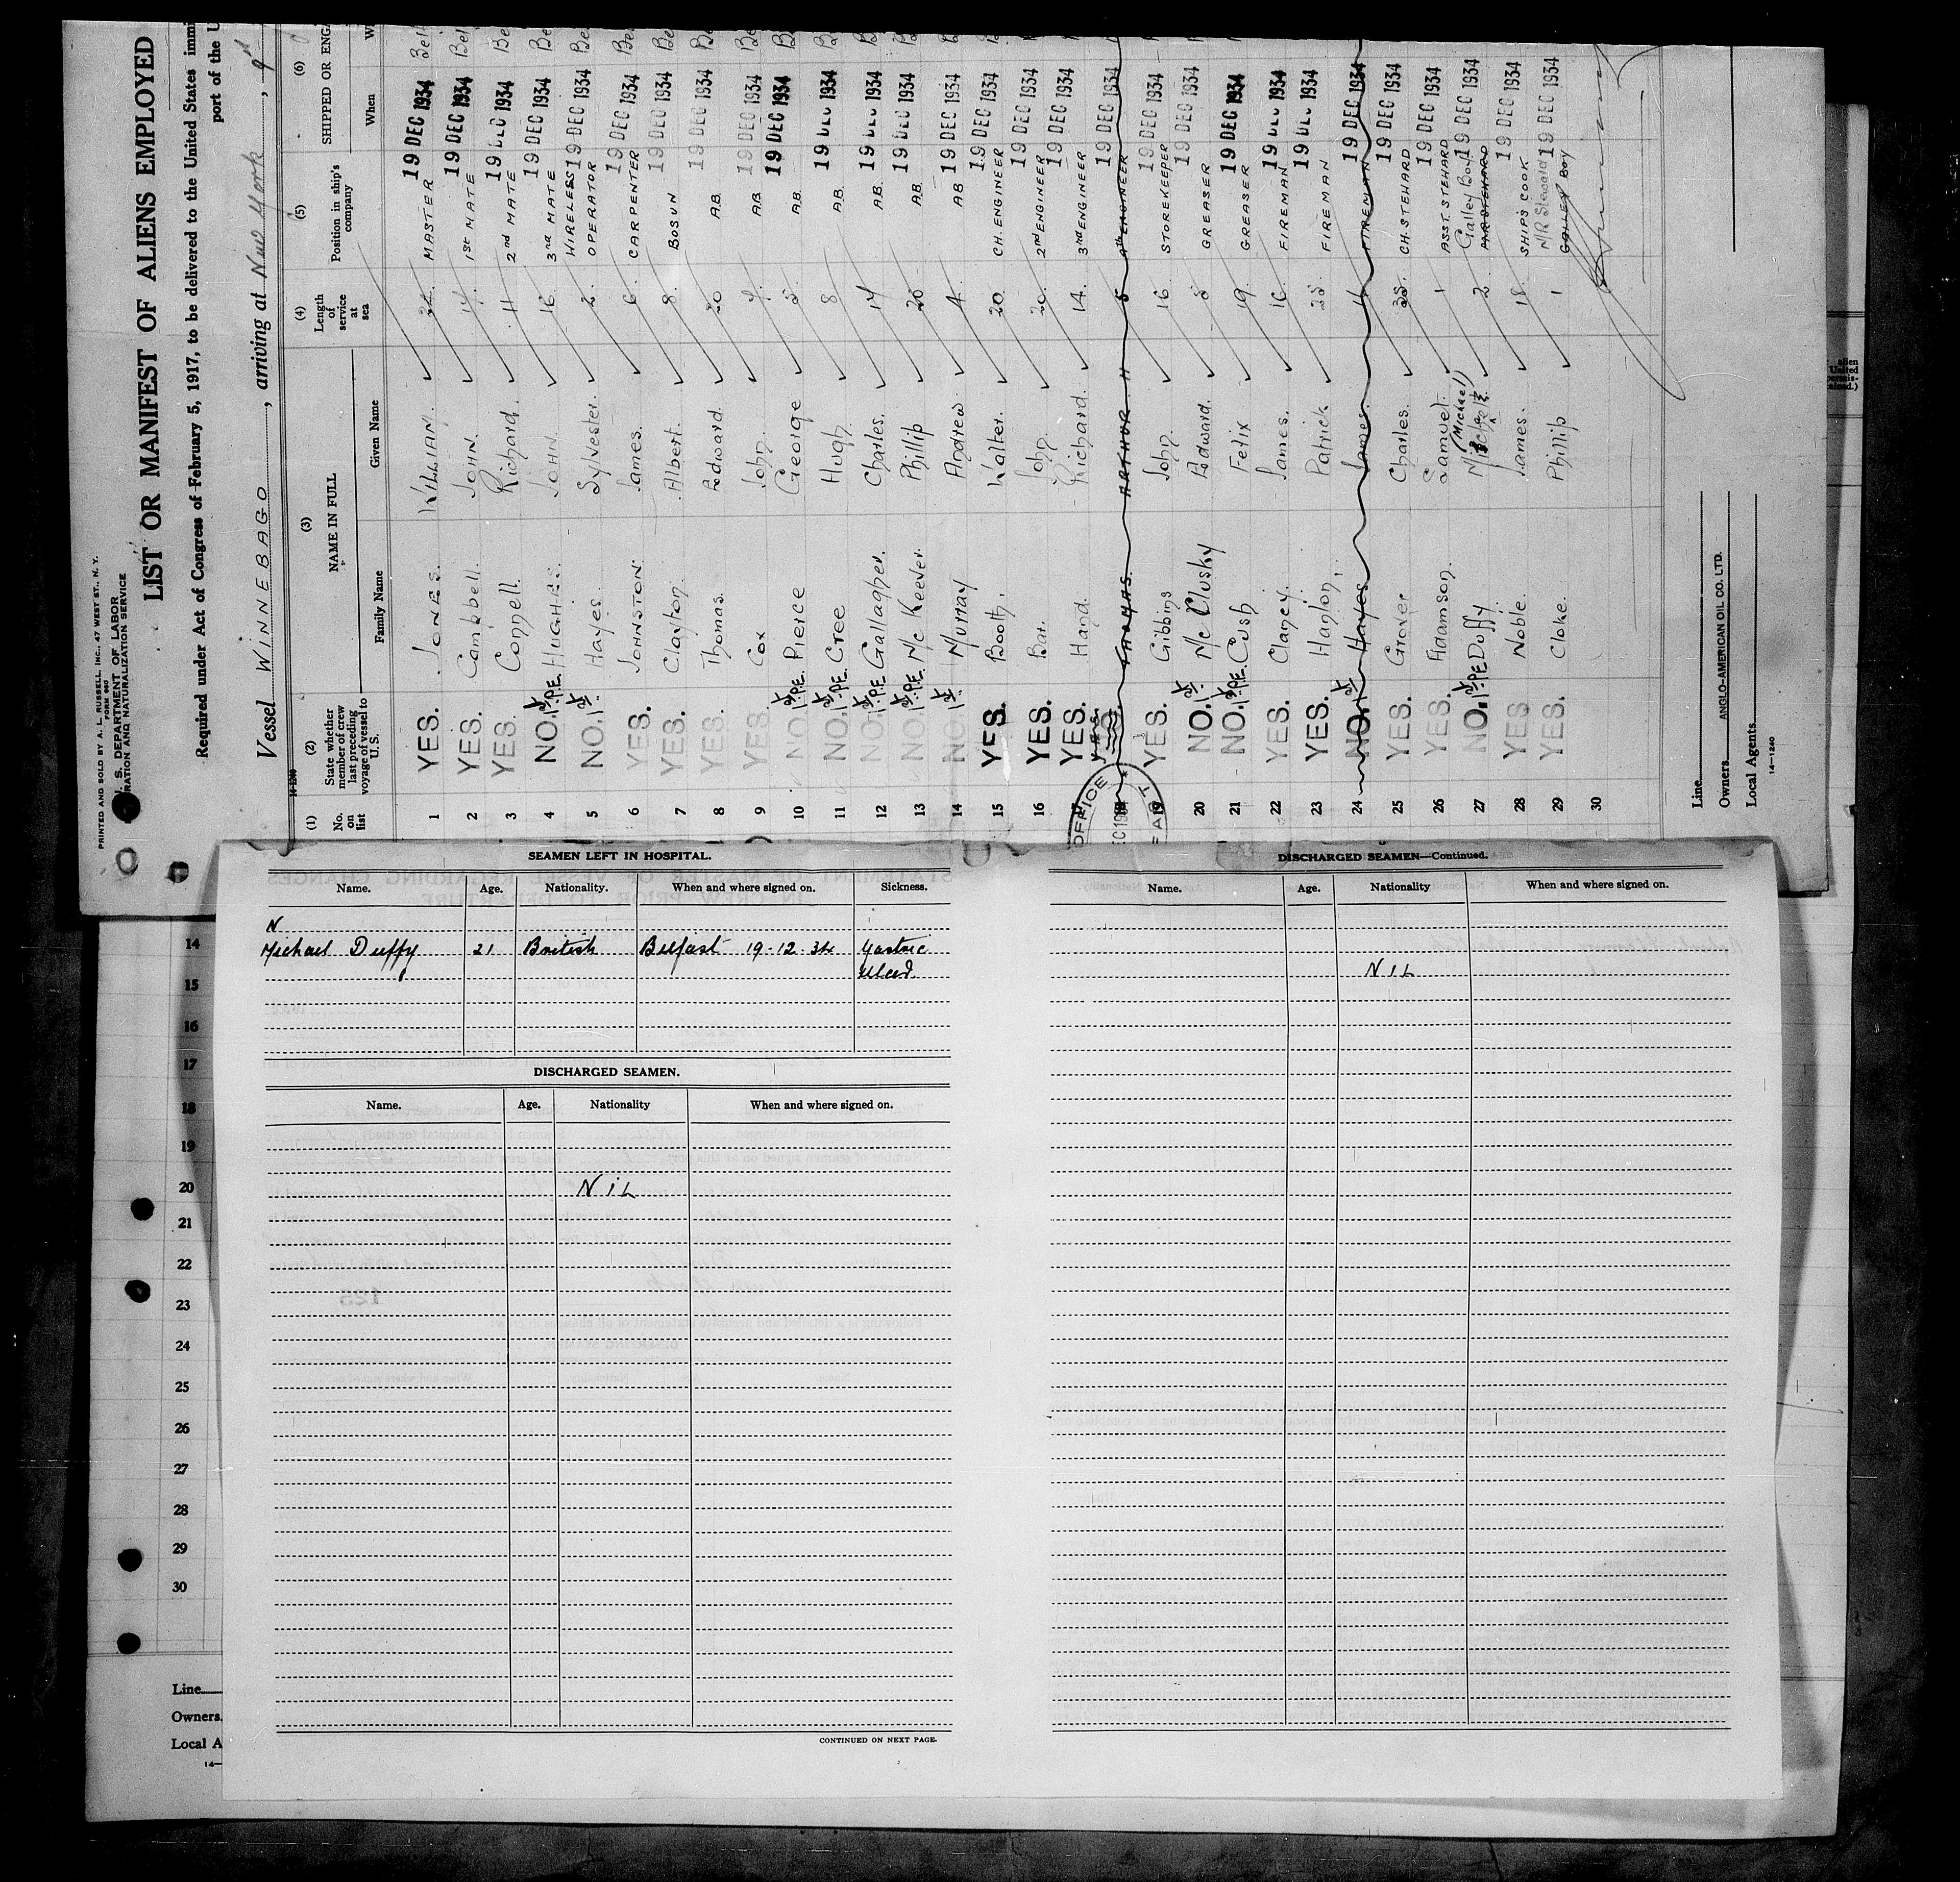 PRINTED AND SOLD BY A. L. RUSSELL, INC., 47 WEST ST., N. Y.
FORM 680
S. DEPARTMENT OF LABOR
RATION AND NATURALIZATION SERVICE
LIST OR MANIFEST OF ALIENS EMPLOYED
Required under Act of Congress of February 5, 1917, to be delivered to the United States immi
port of the U
Vessel WINNEBAGO, arriving at New York,
14-1240
(1) (2) (3) (4) (5) (6)
No. on list State whether member of crew last preceding voyage of vessel to U. S. NAME IN FULL Family Name Given Name Length of service at sea Position in ship's company SHIPPED OR ENG When W
1 YES. JONES. WILLIAM. MASTER 19 DEC 1934 Bel
2 YES. Campbell. JOHN. 1st MATE 19 DEC 1934 Bel
3 YES. Connell. Richard. 11 2nd MATE 19 DEC 1934 Be
4 NO. 1st P.E. HUGHES. JOHN. 16 3rd MATE 19 DEC 1934 Be
5 NO. 1st Hayes. Sylvester. 2 WIRELESS OPERATOR 19 DEC 1934 Be
6 YES. JOHNSTON. James. 6 CARPENTER 19 DEC 1934 Be
7 YES. Clayton. Albert. 8 BOSUN 19 DEC 1934 Be
8 YES. Thomas. Edward. 20 A.B. 19 DEC 1934 Be
9 YES. Cox John. A.B. 19 DEC 1934 Be
10 NO. 1st P.E. Pierce George A.B. 19 DEC 1934 B
11 NO. 1st P.E. Cree Hugh. 8 A.B. 19 DEC 1934 B
12 NO. 1st P.E. Gallagher. Charles. 14 A.B. 19 DEC 1934 B
13 NO. 1st P.E. Mc Keever. Phillip 20 A.B. 19 DEC 1934 B
14 NO. 1st Murray Andrew. A.B 19 DEC 1934 B
15 YES. Booth. Walter. 20 CH. ENGINEER 19 DEC 1934
16 YES. John. 20 2nd ENGINEER 19 DEC 1934
17 YES. Hand. Richard. 14 3rd ENGINEER 19 DEC 1934
18 THOMAS. ARTHUR H 5 4th ENGINEER 19 DEC 1934
19 YES. Gibbins John. 16 STOREKEEPER 19 DEC 1934
20 NO. 1st Mc Clusky Edward. GREASER 19 DEC 1934
21 NO. 1st P.E. Cush Felix 19 GREASER 19 DEC 1934
22 YES. Clancy. James. FIREMAN 19 DEC 1934
23 YES. Hanlon. Patrick FIREMAN 19 DEC 1934
24 NO. 1st Hayes James. 11 FIREMAN 19 DEC 1934
25 YES. Grover Charles. 35 CH. STEWARD 19 DEC 1934
26 YES. Adamson. Samuel. 1 ASST. STEWARD 19 DEC 1934
27 NO. 1st P.E Duffy (Michael) 2 Galley Boy 19 DEC 1934
28 YES Noble. James. 18 SHIPS COOK 19 DEC 1934
29 YES. Cloke. Phillip 1 M/R Steward GALLEY BOY 19 DEC 1934
30
OFFICE
Line
Owners ANGLO-AMERICAN OIL CO. LTD.
Local Agents
14-1240
SEAMEN LEFT IN HOSPITAL.
Name. Age. Nationality. When and where signed on. Sickness.
N
Michael Duffy 21 British Belfast 19-12-34 Gastric
Ulcer.
DISCHARGED SEAMEN.
Name. Age. Nationality When and where signed on.
NIL
CONTINUED ON NEXT PAGE.
DISCHARGED SEAMEN—Continued.
Name. Age. Nationality When and where signed on.
NIL
14
15
16
17
18
19
20
21
22
23
24
25
26
27
28
29
30
Line
Owners.
Local A
14—